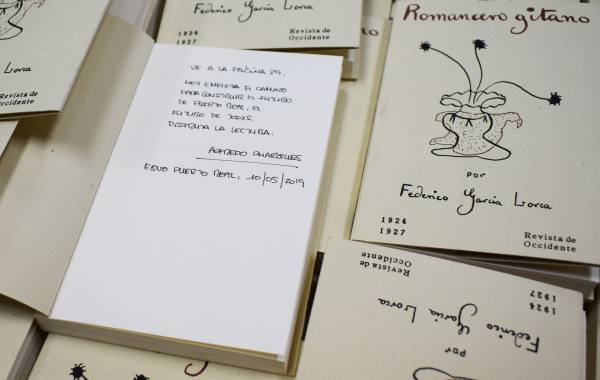 Federico García Lorca
1924
1927
Revista de
Occidente
Lorca
Revista de
Occidente
VE A LA PÁGINA 29.
HOY EMPIEZA EL CAMINO
PARA CONSTRUIR EL FUTURO
DE PUERTO REAL, EL
FUTURO DE TODXS.
DISFRUTA LA LECTURA.
ALFREDO CHARQUES
EQUO PUERTO REAL, 10/05/2019
Romancero gitano
por
Federico García Lorca
1924
1927
Revista de
Occidente
Revista de
Occidente
1924
1927
Federico García Lorca
por